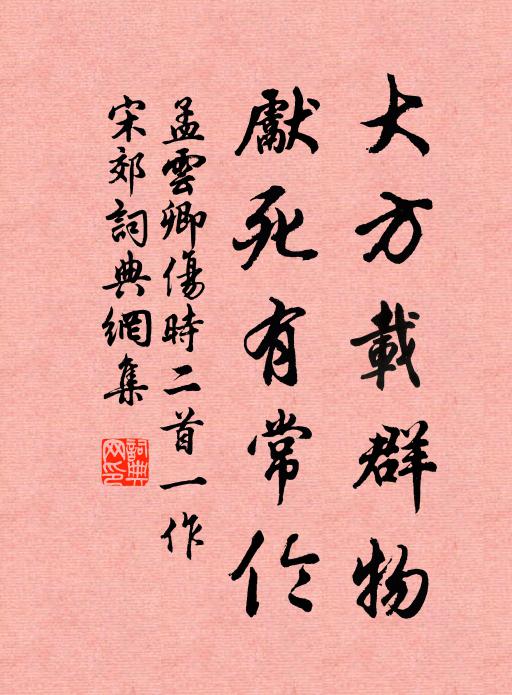 大方載群物
獻死有常
孟雲卿傷時二首一作
宋郊詞典網集
詞典
网印